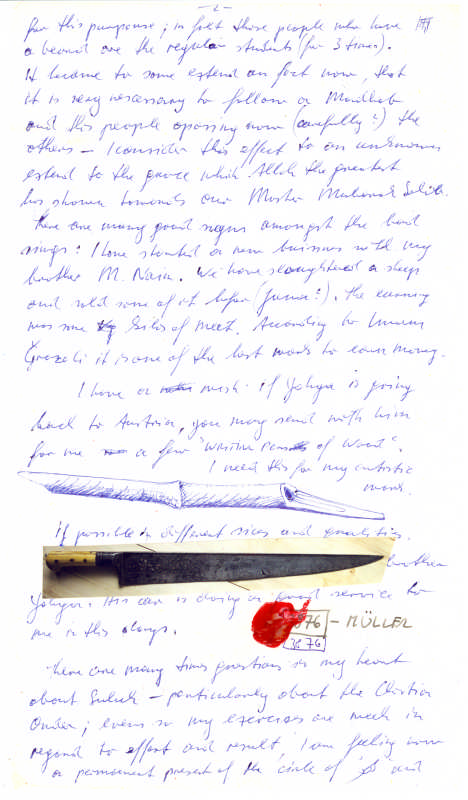 - 2 -
for this purpose; in fact those people who have
a beard are the regular students (for 3 times).
it became to some extend an fact now, that
it is very necessary to follow a Madhab
and this people oposing now (carefully?) the
others - I consider this effect to an unknown
extend to the grace which Allah the greatest
has shown towards our Master Mubarak
There are many good signs amongst the bad
sings: I have started a new buisness with my
brother M. We have slaughtered a sheep
and sold some of it before (Juma?). The earning
was one Kilo of meet. According to Imam
Gazali it is one of the best ways to earn money.
I have a wish: if Yahya is going
back to Austria, you may send with him
for me a few "writing of wood".
I need this for my artistic
work.
If possible in different sizes and qualities.
brother
Yahya: His car is doing a good service to
me in this days.
76 - MÜLLER
3L 76
There are many times questions in my heart
about Suluk - particularly about the Christian
Order; even so my exercises are weak in
regard to effort and result, I am feeling now
a permanent present of the circle of and